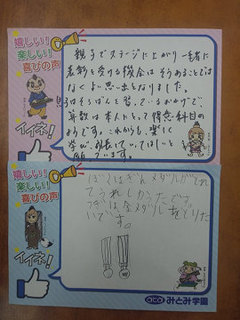 嬉しい!!
楽しい!!
喜びの声
イイネ!
親子でステージに上がり一緒に
表彰を受ける機会はそうあることではなく
よい思い出となりました。
そろばんを習っているおかげで、
算数は本人にとって得意科目の
ようです。これからも楽しく
学び、成長していってほしいと
願っています。
嬉しい!!
楽しい!!
喜びの声
イイネ!
ぼくはぎんメダルがとれ
てうれしかったです。
つぎは金メダルをとりた
いです。
aca みとみ学園